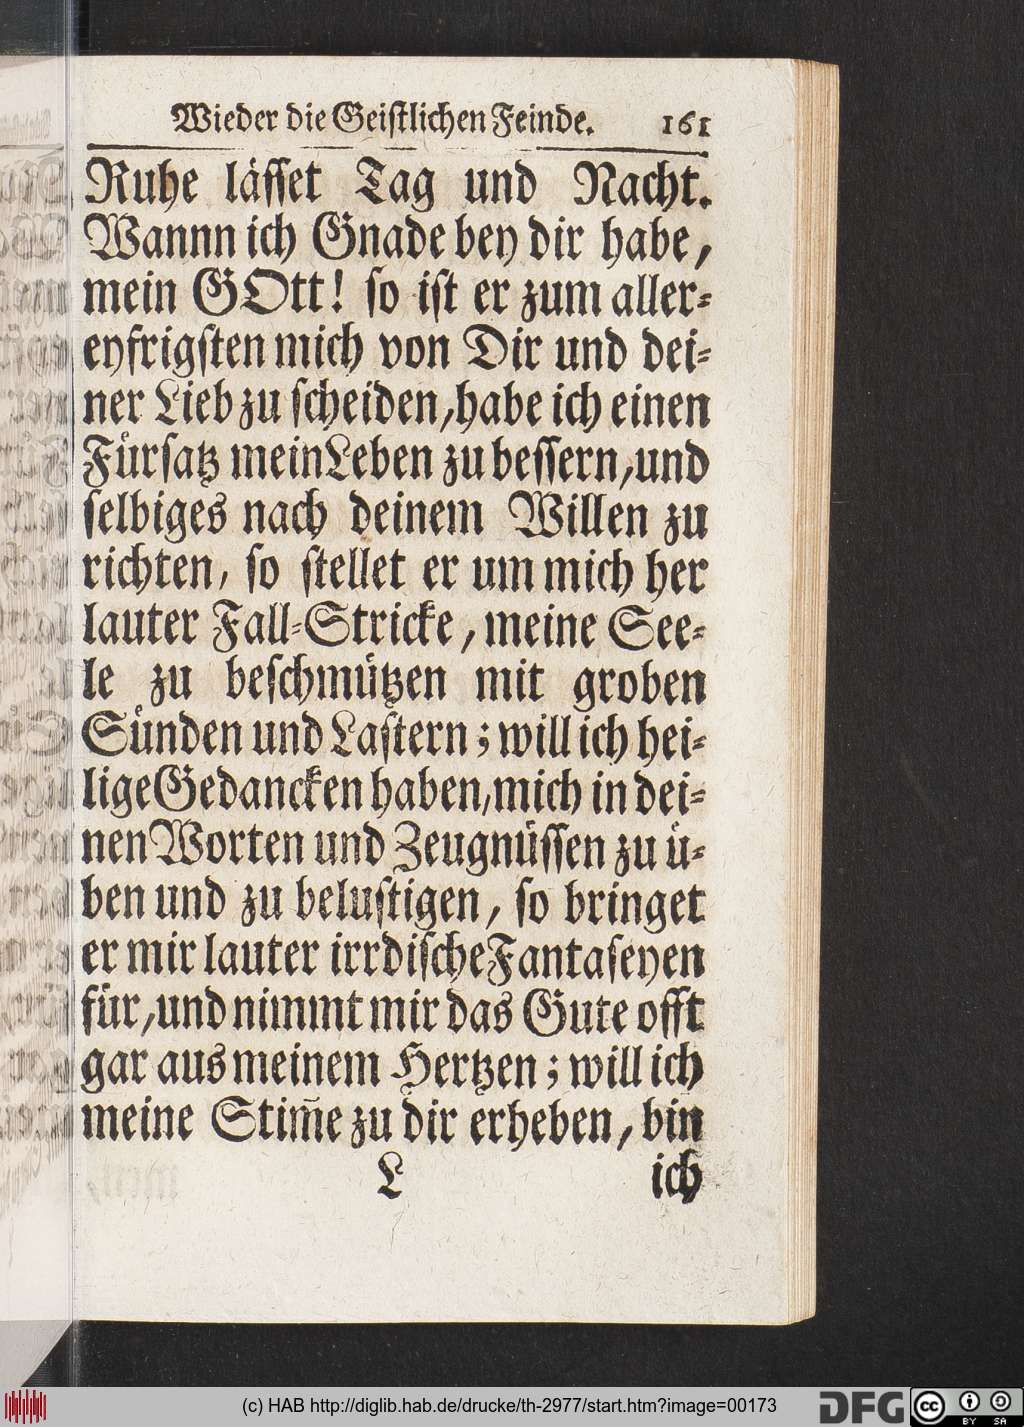 Wieder die Geistlichen Feinde. 161
Ruhe lässet Tag und Nacht.
Wannn ich Gnade bey dir habe,
mein GOtt! so ist er zum aller-
eyfrigsten mich von Dir und dei-
ner Lieb zu scheiden, habe ich einen
Fürsatz mein Leben zu bessern, und
selbiges nach deinem Willen zu
richten, so stellet er um mich her
lauter Fall-Stricke, meine See-
le zu beschmützen mit groben
Sünden und Lastern; will ich hei-
lige Gedancken haben, mich in dei-
nen Worten und Zeugnüssen zu ü-
ben und zu belustigen, so bringet
er mir lauter irrdische Fantaseyen
für, und nimmt mir das Gute offt
gar aus meinem Hertzen; will ich
meine Stim̃e zu dir erheben, bin
L ich
(c) HAB http://diglib.hab.de/drucke/th-2977/start.htm?image=00173
DFG cc BY SA